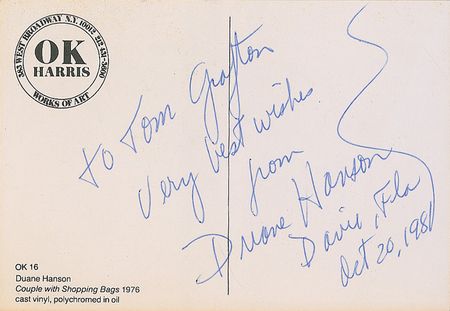 383 WEST BROADWAY N.Y. 10012 212 431-3600
OK
HARRIS
WORKS OF ART
to Tom Grafton
Very best wishes
from
Duane Hanson
Davie, Fla
Oct 20, 1981
OK 16
Duane Hanson
Couple with Shopping Bags 1976
cast vinyl, polychromed in oil